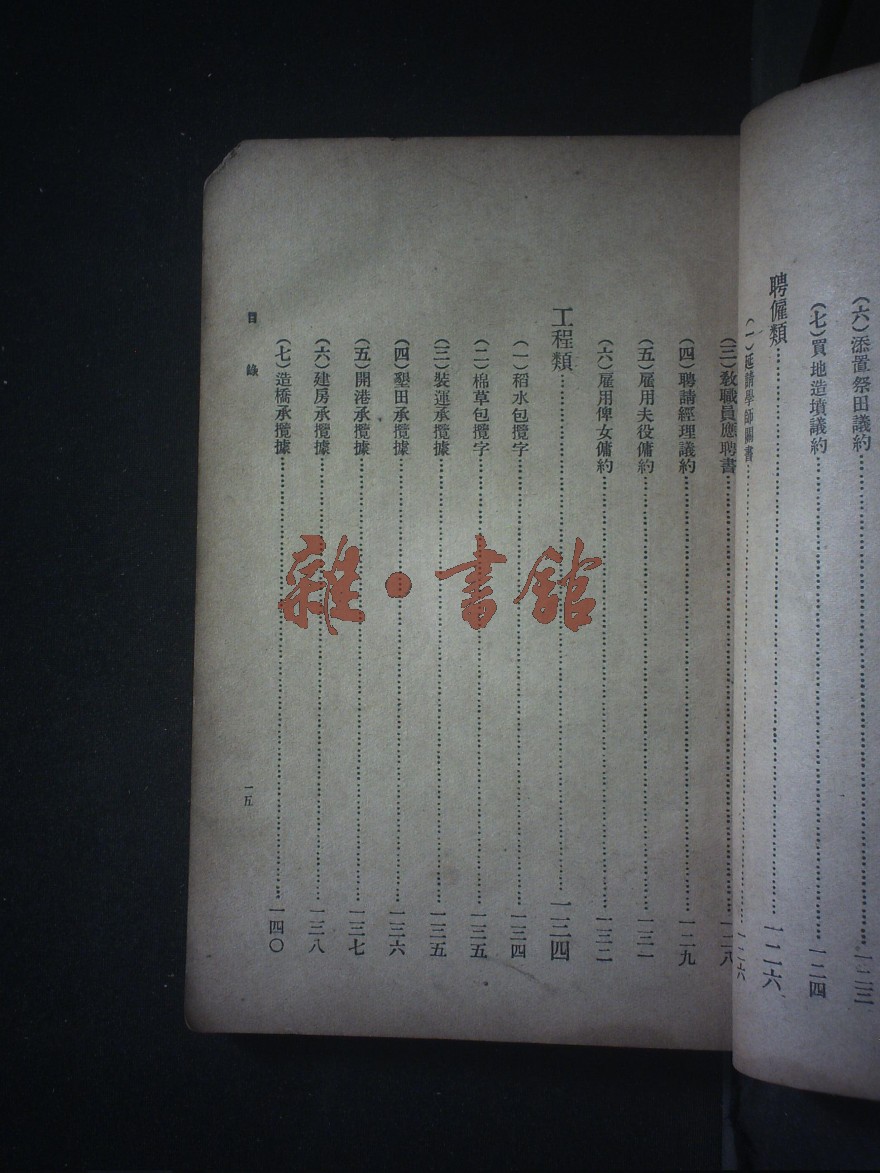 (六)添置祭田議約……一二三
(七)買地造墳議約……一二四
聘僱類……一二六
(一)延請學師關書……一二六
(三)敎職員應聘書……一二八
(四)聘請經理議約……一二九
(五)雇用夫役傭約……一三一
(六)雇用俾女傭約……一三二
工程類……一三四
(一)稻水包攬字……一三四
(二)棉草包攬字……一三五
(三)裝運承攬據……一三五
(四)墾田承攬據……一三六
(五)開港承攬據……一三七
(六)建房承攬據……一三八
(七)造橋承攬據……一四〇
目錄
一五
雜·書館